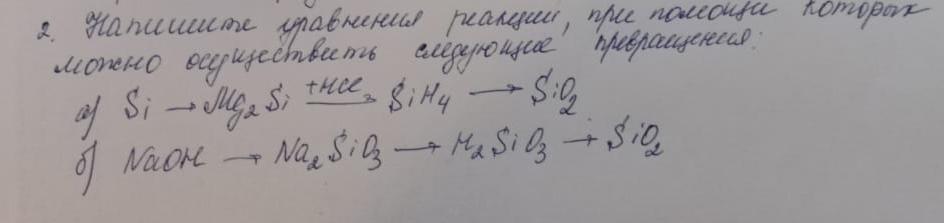 2. Напишите уравнения реакции, при помощи которых
можно осуществить следующие превращения:
а) Si → Mg₂Si +HCl→ SiH₄ → SiO₂
б) NaOH → Na₂SiO₃ → H₂SiO₃ → SiO₂